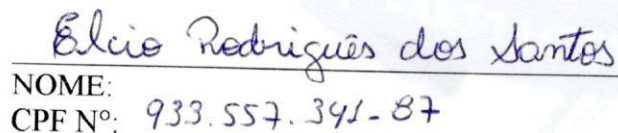 Elcio Rodriguês dos Santos
NOME:
CPF Nº: 933.557.341-87